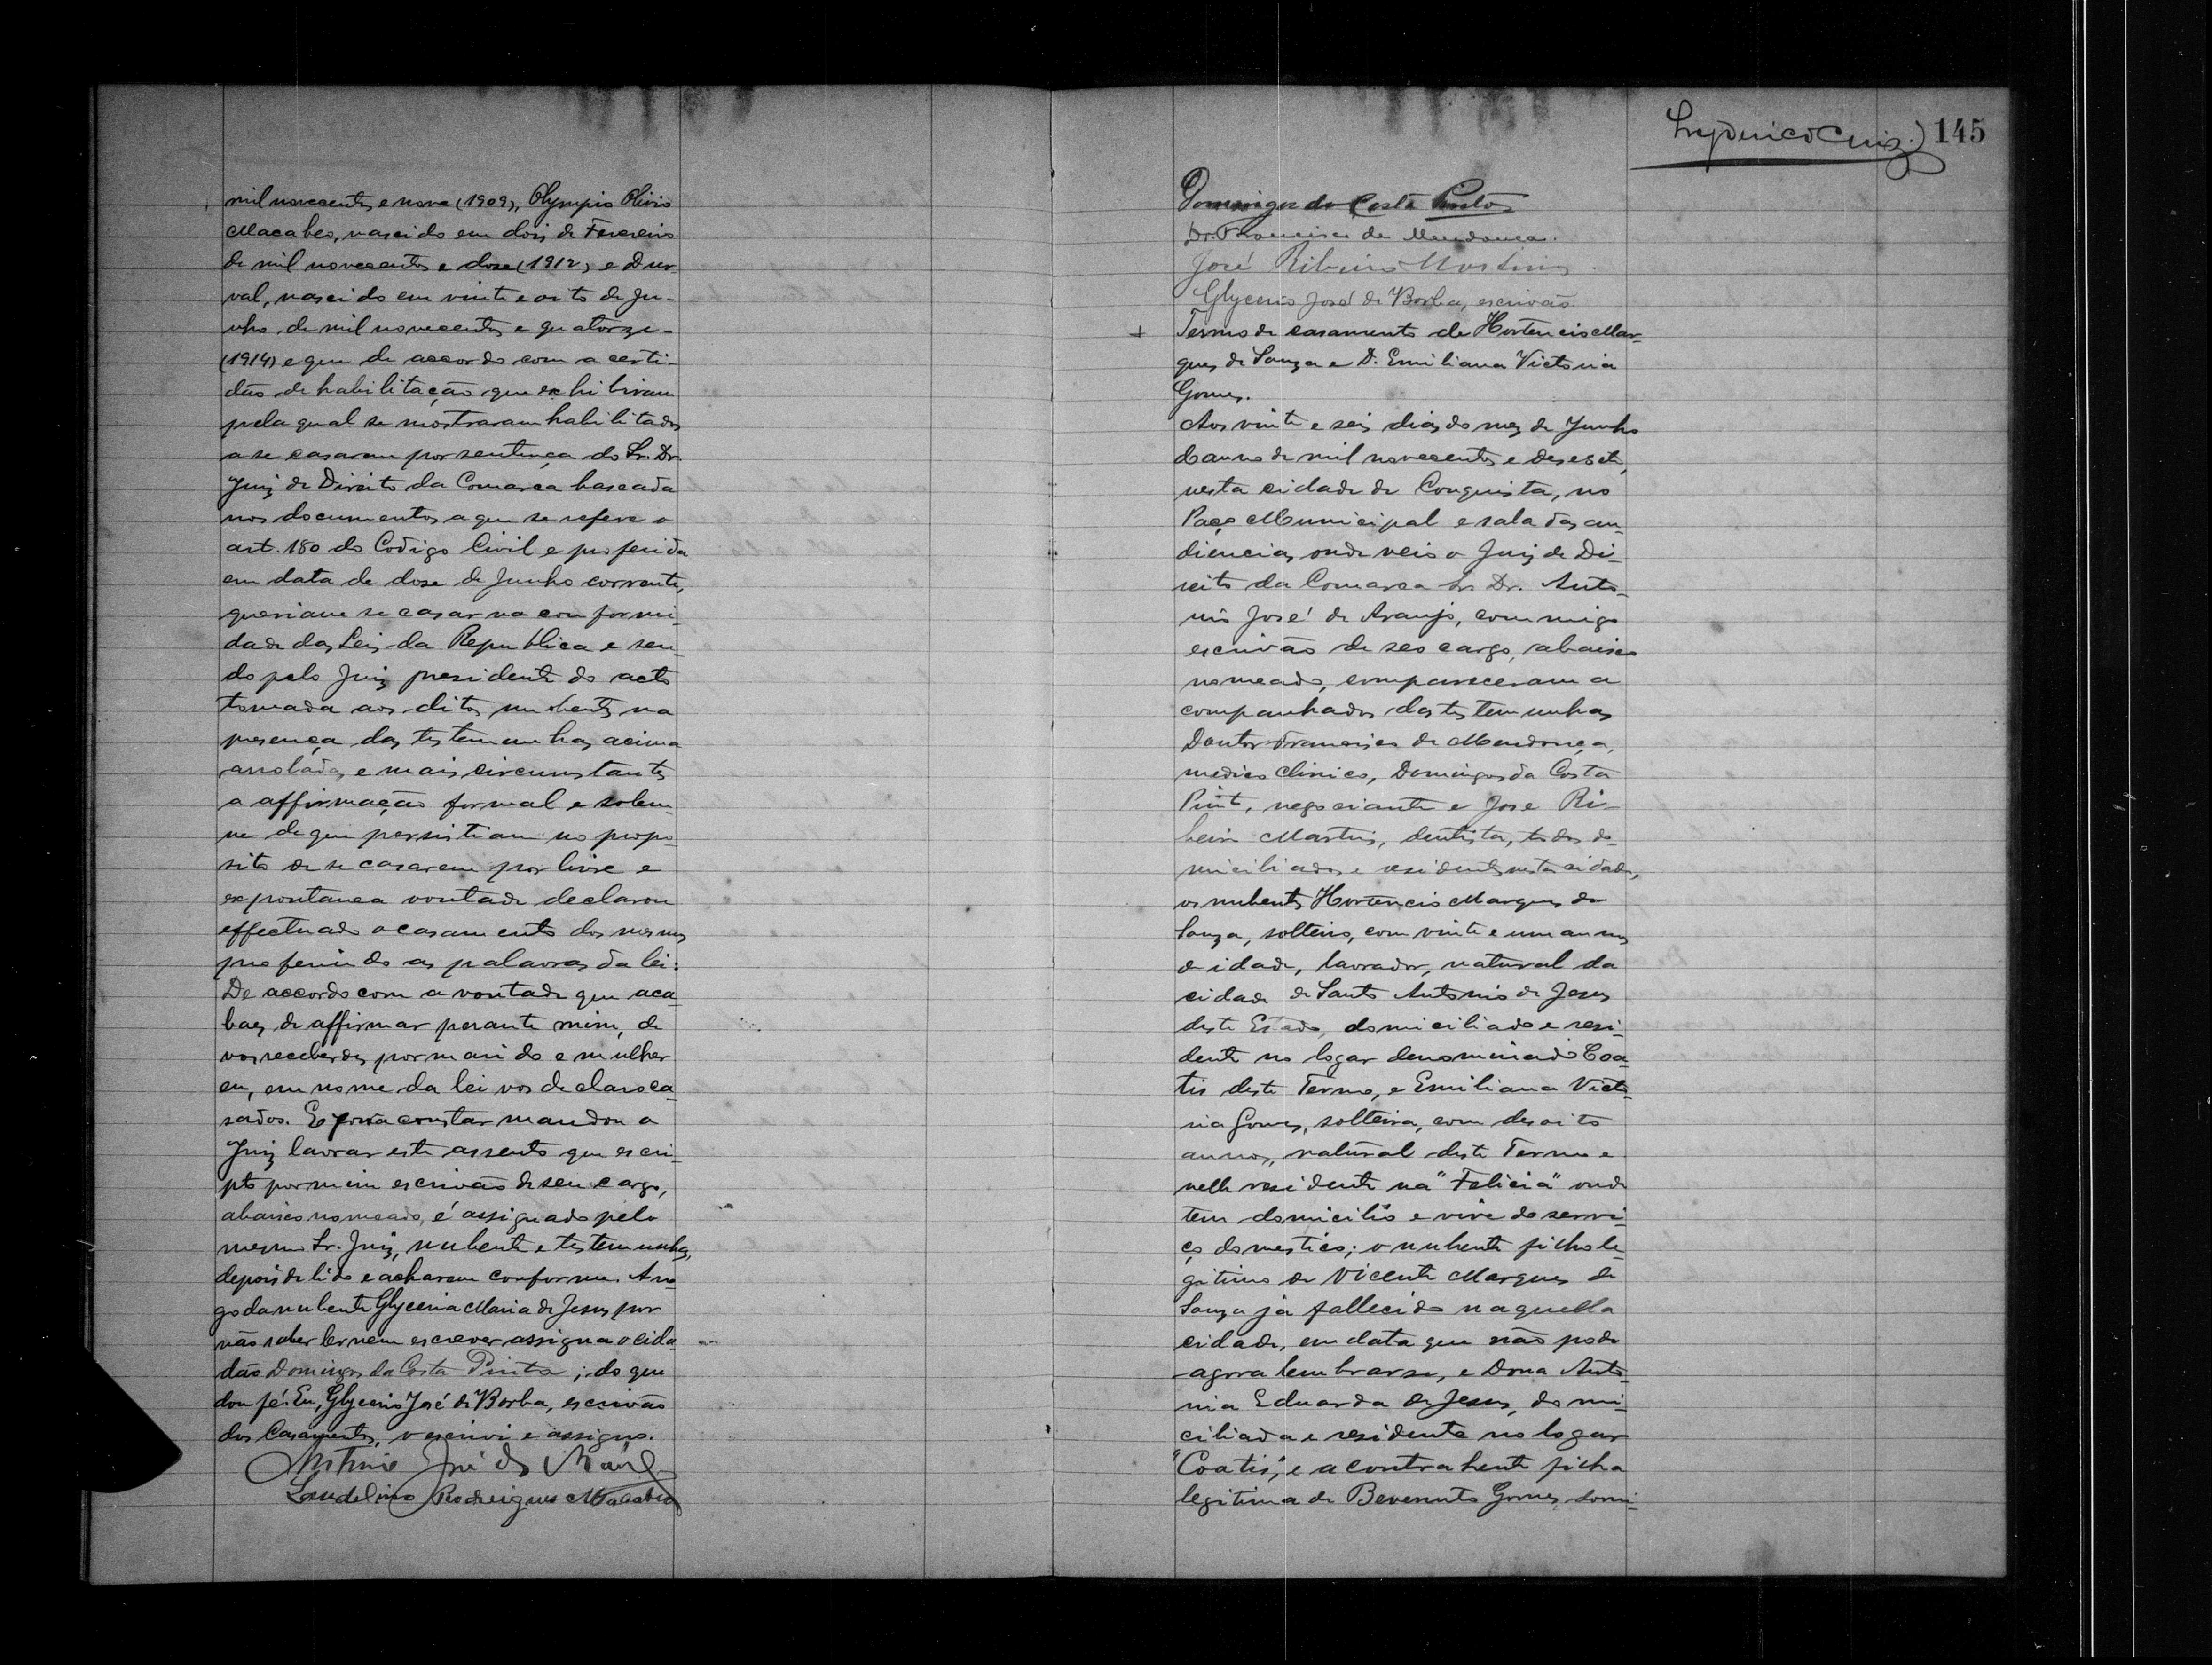 mil novecentos e nove (1909), Olympio Olivio
Macabeo, nascido em dois de Fevereiro
de mil novecentos e dose (1912) e Dur-
val, nascido em vinte e oito de Ju-
nho de mil novecentos e quatorze-
(1914) e que de accordo com a certi-
dão de habilitação que exhibiram
pela qual se mostraram habilitados
a se casarem por sentença do Sr. Dr.
Juiz de Direito da Comarca baseada
nos documentos a que se refere o
art. 180 do Codigo Civil e proferida
em data de dose de Junho corrente,
queriam se casar na conformi-
dade das Leis da Republica e sen-
do pelo Juiz presidente do acto
tomada aos ditos nubentes na
presença das testemunhas acima
arroladas e mais circunstantes
a affirmação formal e solem-
ne de que persistiam no propo-
sito de se casarem por livre e
expontanea vontade declarou
effectuado o casamento dos mesmos
proferindo as palavras da lei:
De accordo com a vontade que aca-
baes de affirmar perante mim, de
vos receberdes por marido e mulher
eu, em nome da lei vos declaro ca-
sados. E para constar mandou o
Juiz lavrar este assento que escri-
pto por mim escrivão de seu cargo,
abaixo nomeado, é assignado pelo
mesmo Sr. Juiz, nubente e testemunhas,
depois de lido e acharem conforme. A ro-
go da nubente Glyceria Maria de Jesus por
não saber ler nem escrever assigna o cida-
dão Domingos da Costa Pinto; do que
dou fé. Eu, Glycerio José de Borba, escrivão
dos Casamentos, o escrivi e assigno.
Antonio José de Araujo
Laudelino Rodrigues Macabeo
145
Domingos da Costa Pinto
Dr. Francisco de Mendonça.
José Ribeiro Martins
Glycerio José de Borba, escrivão
+ Termo de casamento de Hortencio Mar-
ques de Souza e D. Emiliana Victoria
Gomes.
Aos vinte e seis dias do mez de Junho
do anno de mil novecentos e desesete,
nesta cidade de Conquista, no
Paço Municipal e sala das au-
diencias, onde veio o Juiz de Di-
reito da Comarca Sr. Dr. Anto-
nio José de Araujo, commigo
escrivão de seo cargo, abaixo
nomeado, compareceram a
companhados das testemunhas
Doutor Francisco de Mendonça,
medico clinico, Domingos da Costa
Pinto, negociante e Jose Ri-
beiro Martins, dentista, todos do-
miciliados e residentes nesta cidade,
os nubentes Hortencio Marques de
Souza, solteiro, com vinte e um annos
de idade, lavrador, natural da
cidade de Santo Antonio de Jesus
deste Estado, domiciliado e resi-
dente no logar denominado Coa-
tis deste Termo, e Emiliana Victo-
ria Gomes, solteira, com desoito
annos, natural deste Termo e
nelle residente na "Felicia" onde
tem domicilio e vive do servi-
ço domestico; o nubente filho le-
gitimo de Vicente Marques de
Souza já fallecido naquella
cidade, em data que não pode
agora lembrarse, e Dona Anto-
nia Eduarda de Jesus, domi-
ciliada e residente no logar
"Coatis", e a contrahente filha
legitima de Benvenuto Gomes, domi-